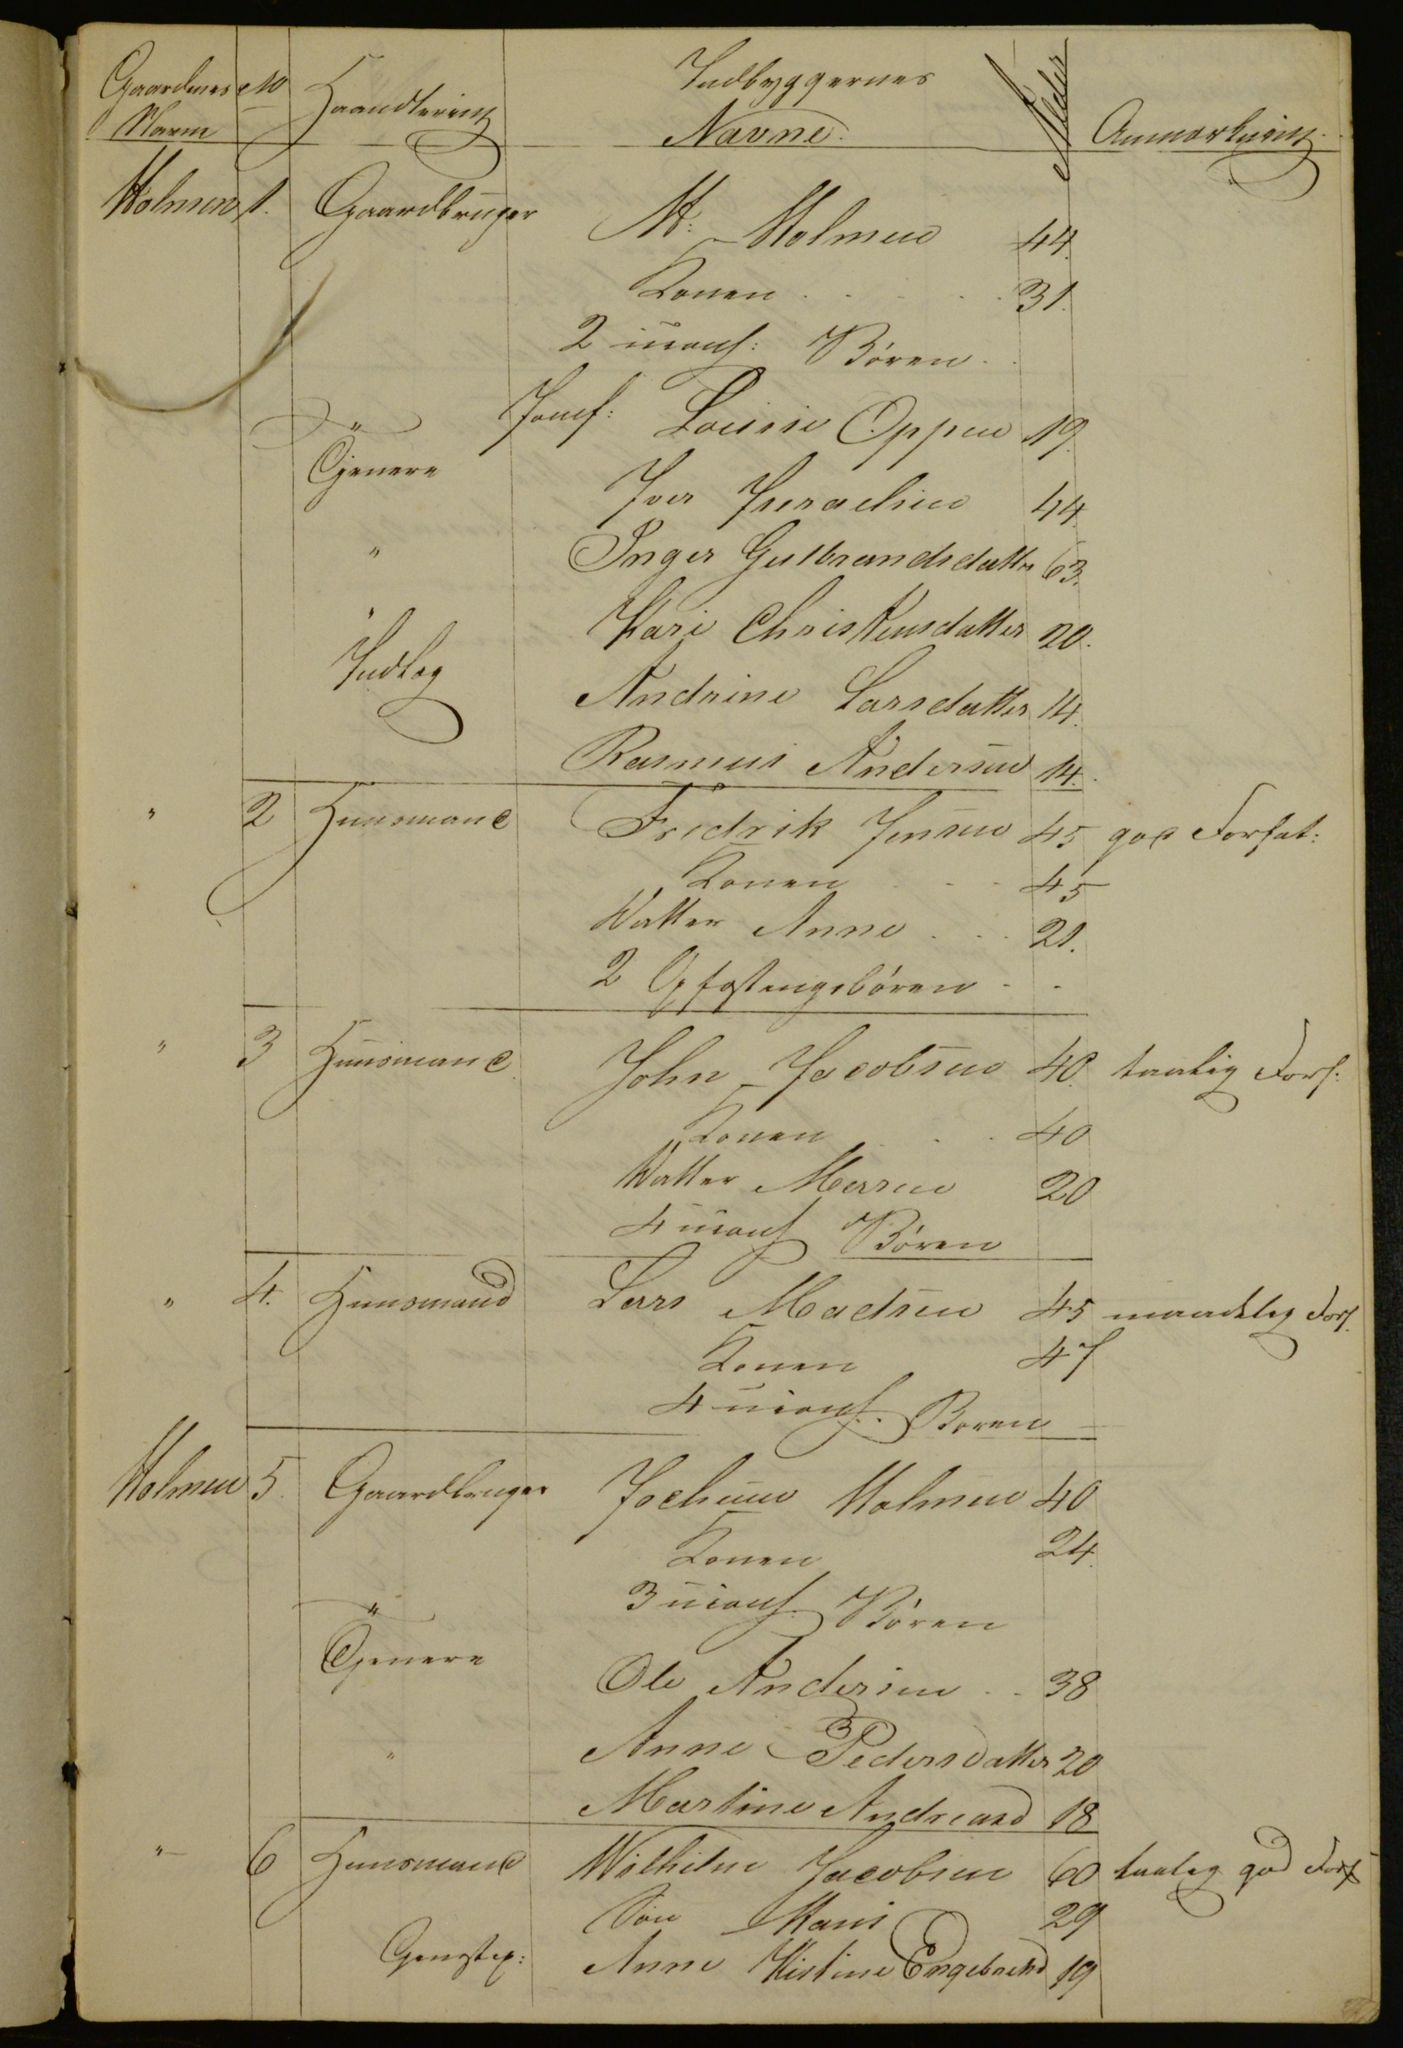 Gaardenes Navn No Haandtering Indbyggernes Navne. Alder Anmærkning.
Holmen 1. Gaardbruger H. Holmen 44.
Konen 31.
2 uconf: Børen
" Jomf: Lovise Oppen 19.
Tjenere Iver Iversen 44.
" Inger Gulbrandsdatter 63.
" Kari Christensdatter 20.
Indlag Andrine Larsdatter 14.
Rasmus Andersen 14.
" 2 Huusmand Fredrik Jensen 45 god Forfat:
Konen 45
Datter Anne 21.
2 Opfostringsbøren
" 3 Huusmand John Jacobsen 40. taalig Forf.
Konen 40
Datter Maren 20
4 uconf Børen
" 4. Huusmand Lars Madsen 45 maadelig Forf.
Konen 47
4 uconf. Boren
Holmen 5. Gaardbruger Jochum Holmen 40
Konen 24.
" 3 uconf. Børen
Tjenere Ole Andersen 38
" Anne Pedersdatter 20
Martine Andreasd 18
" 6 Huusmand Wilhelm Jacobsen 60 taaleg god Forf
Søn Hans 29
Tjenstep: Anne Kistine Engebretsd 19